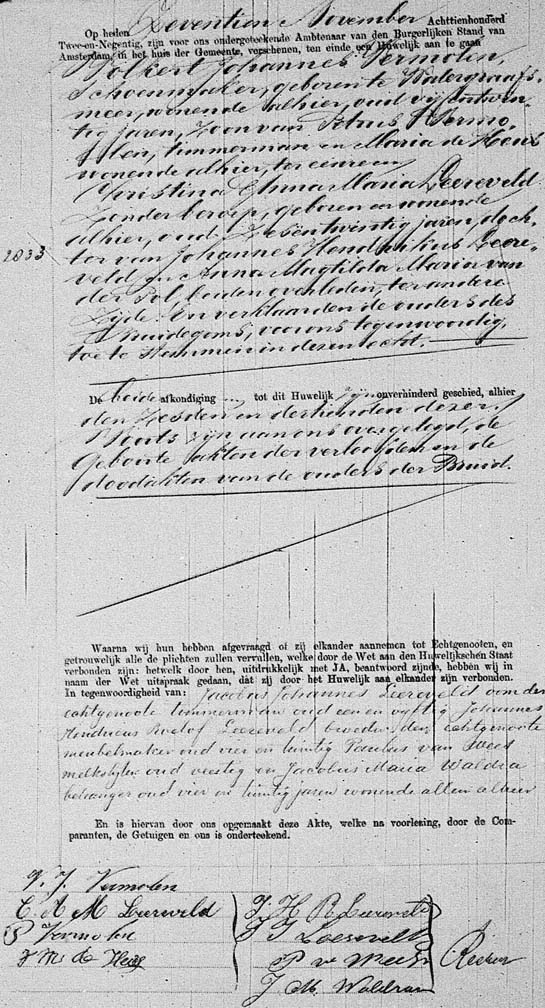 Op heden Zeventien November Achttienhonderd
Twee-en-Negentig, zijn voor ons ondergeteekende Ambtenaar van den Burgerlijken Stand van
Amsterdam, in het huis der Gemeente, verschenen, ten einde een Huwelijk aan te gaan
Volkert Johannes Vermolen,
Schoenmaker, geboren te Watergraafs-
meer, wonende alhier, oud vijfentwin-
tig jaren, Zoon van Petrus Vermo-
len, timmerman en Maria de Heus
wonende alhier, ter eenre en
Christina Anna Maria Leereveld
Zonder beroep, geboren en wonende
alhier, oud Zesentwintig jaren, doch-
2033
ter van Johannes Hendrikus Leere-
veld en Anna Magtilda Maria van
der Pol, beiden overleden, ter andere
Zijde. En verklaarden de ouders des
Bruidegoms, voor ons tegenwoordig,
toe te stemmen in dezen echt.
De beide afkondiging tot dit Huwelijk zijn onverhinderd geschied, alhier
den Zesden en dertienden dezer.
Voorts zijn aan ons overgelegd, de
Geboorte akten der verloofden en de
doodakten van de ouders der Bruid.
Waarna wij hun hebben afgevraagd of zij elkander aannemen tot Echtgenooten, en
getrouwelijk alle de plichten zullen vervullen, welke door de Wet aan den Huwelijkschen Staat
verbonden zijn: hetwelk door hen, uitdrukkelijk met JA, beantwoord zijnde, hebben wij in
naam der Wet uitspraak gedaan, dat zij door het Huwelijk aan elkander zijn verbonden.
In tegenwoordigheid van: Jacobus Johannes Leereveld oom der
echtgenoote timmerman oud een en vijftig Johannes
Hendricus Roelof Leereveld broeder der echtgenoote
meubelmaker oud vier en twintig Paulus van
melkslyter oud veertig en Jacobus Maria Waldra
behanger oud vier en twintig jaren wonende allen alhier
En is hiervan door ons opgemaakt deze Akte, welke na voorlezing, door de Com-
paranten, de Getuigen en ons is onderteekend.
V. J. Vermolen
C. A. M. Leereveld
P Vermolen
M. de Heus
J. H. R. Leereveld
J. J. Leereveld
P v
J. M. Waldra